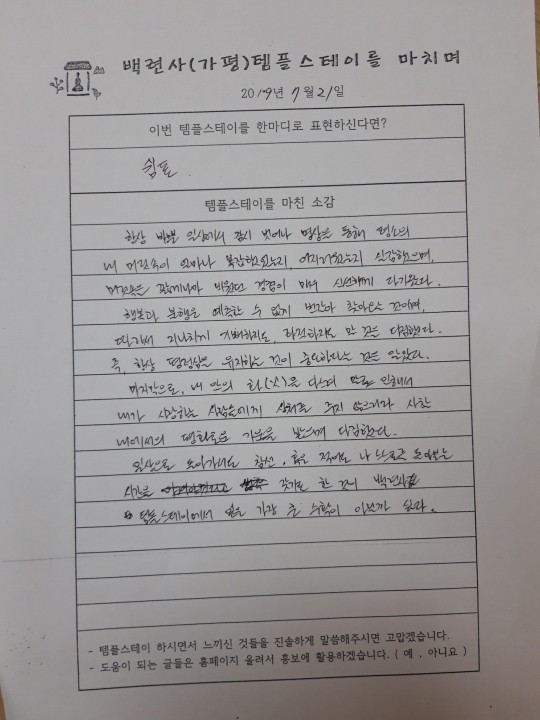 백련사(가평)템플스테이를 마치며
2019년 7월 21일
이번 템플스테이를 한마디로 표현하신다면?
쉼표.
템플스테이를 마친 소감
항상 바쁜 일상에서 잠시 벗어나 명상을 통해 평소의
내 머릿속이 얼마나 복잡했었는지, 어지러웠는지 실감했으며,
머릿속을 잠깐이나마 비웠던 경험이 매우 신선하게 다가왔다.
행복과 불행은 예측할 수 없지 번갈아 찾아오는 것이며,
따라서 지나치게 기뻐하지도, 좌절하지도 말 것을 다짐했다.
즉, 항상 평정심을 유지하는 것이 중요하다는 것을 알았다.
마지막으로, 내 안의 화(火)을 다스려 말로 인해서
내가 사랑하는 사람들에게 상처를 주지 않으리라 사찰
내에서의 평화로운 기운을 받으며 다짐했다.
일상으로 돌아가서도 참선, 혹은 적어도 나 스스로를 돌아보는
시간을 갖기로 한 것이 백련사
템플스테이에서 얻은 가장 큰 수확이 아닌가 싶다.
- 템플스테이 하시면서 느끼신 것들을 진솔하게 말씀해주시면 고맙겠습니다.
- 도움이 되는 글들은 홈페이지 올려서 홍보에 활용하겠습니다. ( 예 , 아니요 )